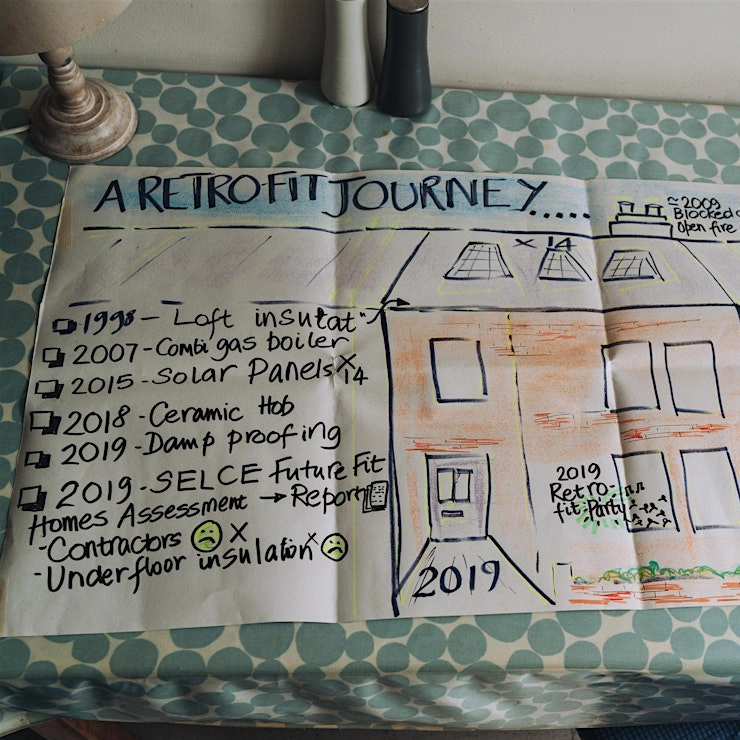 A RETROFIT JOURNEY.....
≈2009
Blocked
Open fire
x 14
1998 - Loft insulat"
2007 - Combi gas boiler
2015 - Solar Panels x
14
2018 - Ceramic Hob
2019 - Damp proofing
2019 - SELCE Future Fit
Homes Assessment → Report
- Contractors x
- Underfloor insulation x
2019
Retro-
fit Party
2019